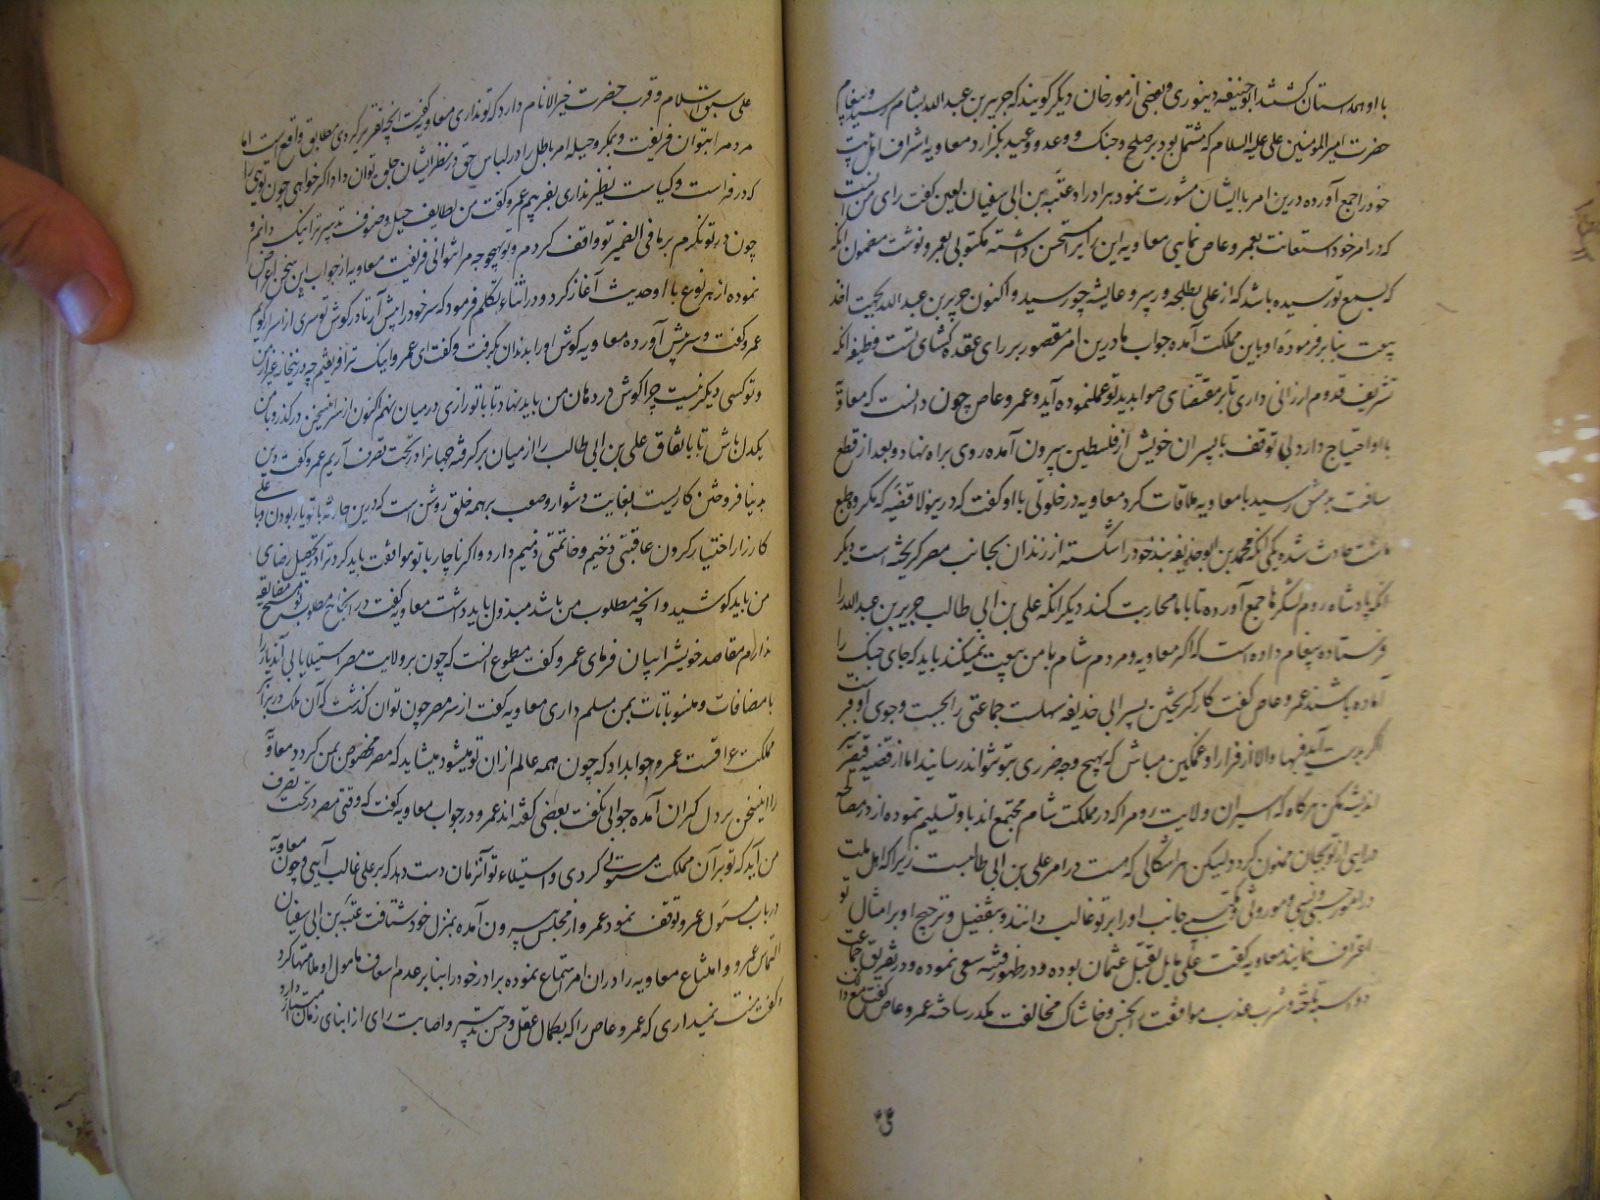 با او همداستان کشتند ابو حنیفه دینوری و بعضی از مورخان دیگر گویند که جریر بن عبد الله بشام رسید و پیغام
حضرت امیر المومنین علی علیه السلام که مشتمل بود بر صلح و جنک و وعد و وعید بگزارد معاویه اشراف اهل بیت
خود را جمع آورده درین امر با ایشان مشورت نمود برادر او عتبه بن ابی سفیان لعین کفت رای من آنست
که در امر خود استعانت بعمرو عاص نمایی معاویه این رای را مستحسن داشته مکتوبی بعمرو نوشت مضمون آنکه
که بسمع تو رسیده باشد که از علی بطلحه و زبیر و عایشه چه رسید و اکنون جریر بن عبد الله بجهت اخذ
بیعت بنا بر فرموده او باین مملکت آمده جواب ما درین امر مقصور بر رای عقده کشای تست وظیفه آنکه
تشریف قدوم ارزانی داری تا بر مقتضای صوابدید تو عمل نموده آید و عمرو عاص چون دانست که معاویه
با او احتیاج دارد بی توقف با پسران خویش از فلسطین بیرون آمده روی براه نهاد و بعد از قطع
مسافت بدمشق رسید با معاویه ملاقات کرد معاویه در خلوتی با او کفت که درینولا قضیه که مکروه طبع
ماست حادث شده یکی آنکه محمد بن ابو حذیفه بند خود را شکسته از زندان بجانب مصر کریخته است دیگر
آنکه پادشاه روم لشکرها جمع آورده تا با ما محاربت کند دیکر آنکه علی بن ابی طالب جریر بن عبد الله را
فرستاده پیغام داده است که اکر معاویه و مردم شام با من بیعت نمیکنند باید که جای جنک را
آماده باشند عمرو عاص کفت کار کریختن پسر ابی حذیفه سهلست جماعتی را بجست و جوی او فرست
اگر بدست آید فبها والا از فرار او غمکین مباش که بهیچ وجه ضرری بتو نتواند رسانید اما از قضیه قیصر
اندیشه مکن هرکاه که اسیران ولایت روم را که در مملکت شام مجتمع اند باو تسلیم نموده از در مصالحه
درایی از تو بجان ممنون کردد ولیکن هر اشکالی که هست در امر علی بن ابی طالبست زیرا که اهل ملت
در امور حسبی و نسبی و موروثی و مکتسبی جانب او را بر تو غالب دانند و بتفضیل و ترجیح او بر امثال تو
اعتراف نمایند معاویه کفت علی مایل بقتل عثمان بوده و در ظهور فتنه سعی نموده و در تفریق جماعت
کوشیده مشرب عذب موافقت را بخس و خاشاک مخالفت مکدر ساخته عمرو عاص کفت
علی سبق اسلام و قرب حضرت خیر الانام دارد که تو نداری معاویه کفت آنچه تقریر کردی مطابق واقع است اما
مردم را بتوان فریفت و بمکر و حیله امر باطل را در لباس حق در نظر ایشان جلوه توان داد اکر خواهی چون تویی را
که در فراست و کیاست نظیر نداری بفریبم عمرو کفت من لطایف حیل و صنوف تدبیر ترا نیک دانم و
چون در تو نکرم بر ما فی الضمیر تو واقف کردم و تو بهیچ وجه مرا نتوانی فریفت معاویه از جواب این سخن اعراض
نموده از هر نوع با او حدیث آغاز کرد و در اثناء تکلم فرمود که سر خود را پیش آر تا در کوش تو سری از اسرار کویم
عمرو کفت و سر پیش آورده معاویه کوش او را بدندان بگرفت و کفت ای عمرو اینک ترا فریفتیم چه درینخانه غیر از من
و تو کسی دیگر نیست چرا کوش در دهان من باید نهاد تا با تو رازی در میان نهم اکنون از سر این سخن درگذر و با من
یکدل باش تا باتفاق علی بن ابی طالب را از میان برگرفته جهانرا در تحت تصرف آریم عمرو کفت دین
بدنیا فروختن کاریست بغایت دشوار و صعب بر همه خلق روشن است که درین حادثه با تو یار بودن و با علی
کارزار اختیار کردن عاقبتی وخیم و خاتمتی ذمیم دارد و اکر ناچار با تو موافقت باید کرد ترا در تحصیل رضای
من باید کوشید و انچه مطلوب من باشد مبذول باید داشت معاویه کفت در انجاح مطلوب تو هیچ مضایقه
ندارم مقاصد خویش را بیان فرمای عمرو کفت مطموع آنست که چون بر ولایت مصر استیلا یابی آندیار را
با مضافات و منسوبات بمن مسلم داری معاویه کفت از سر مصر چون توان کذشت که آن ملک در برابر
مملکت عراقست عمرو جوابداد که چون همه عالم از ان تو میشود میشاید که مصر مخصوص بمن کردد معاویه
را اینسخن بر دل کران آمده جوابی نکفت بعضی کفته اند عمرو در جواب معاویه کفت که وقتی مصر در تحت تصرف
من آید که تو بر آن مملکت مستولی کردی و استیلاء تو آنزمان دست دهد که بر علی غالب آیی و چون معاویه
در باب مسئول عمرو توقف نمود عمرو از مجلس بیرون آمده بمنزل خود شتافت عتبه بن ابی سفیان
التماس عمرو و امتناع معاویه را در ان امر استماع نموده برادر خود را بنا بر عدم اسعاف مامول او ملامتها کرد
و کفت منت نمیداری که عمرو عاص را که بکمال عقل و حسن تدبیر و اصابت رای از ابنای زمان امتیاز دارد